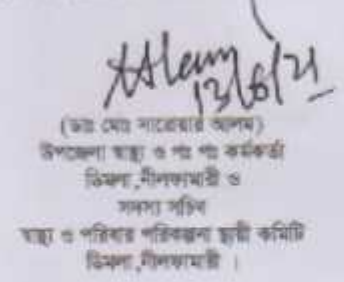 Alam
13/6/21
(ডাঃ মোঃ সারোয়ার আলম)
উপজেলা স্বাস্থ্য ও পঃ পঃ কর্মকর্তা
ডিমলা,নীলফামারী ও
সদস্য সচিব
স্বাস্থ্য ও পরিবার পরিকল্পনা স্থায়ী কমিটি
ডিমলা,নীলফামারী ।